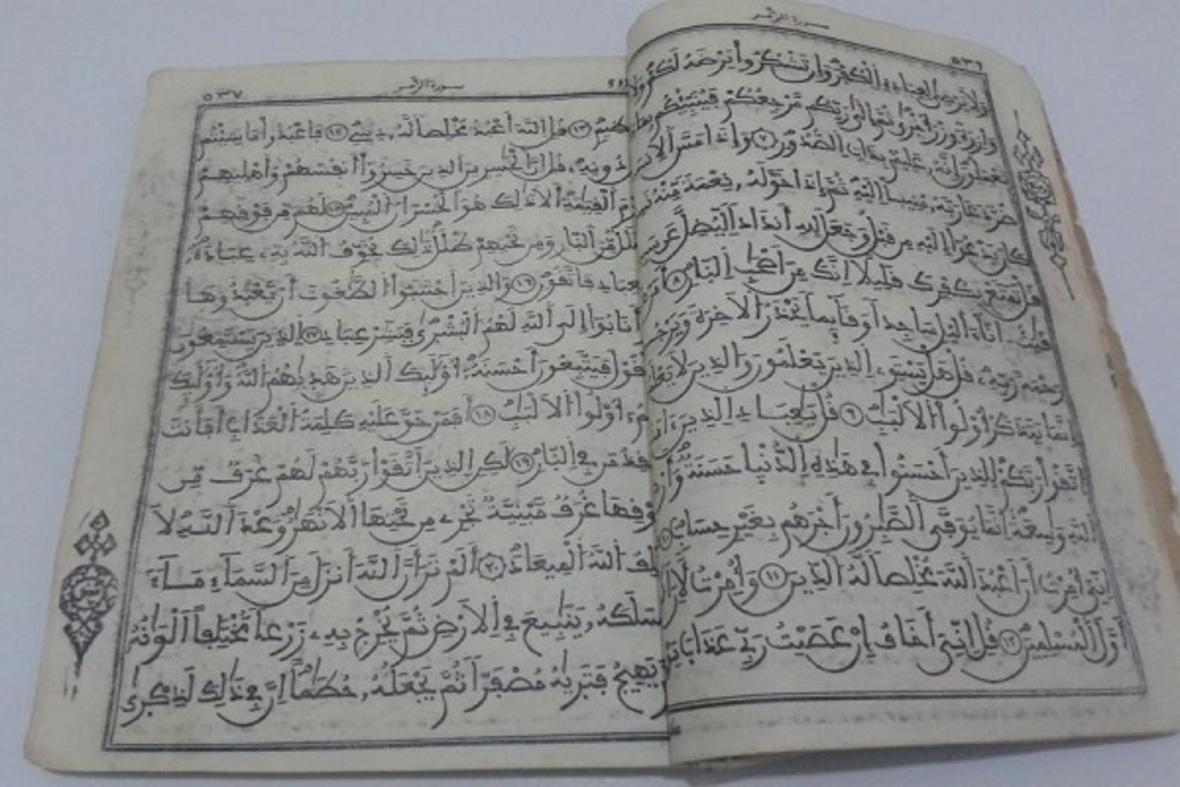 سورة الزمر ٥٣٦
ولا يرضى لعباده الكفر وإن تشكروا يرضه لكم ولا
وازرة وزر أخرى ثم إلى ربكم مرجعكم فينبئكم بما
تعملون إنه عليم بذات الصدور ٧ وإذا مس الانس
ضر دعا ربه منيبا إليه ثم إذا خوله نعمة منه نسي
كان يدعوا إليه من قبل وجعل لله أندادا ليضل عن
قل تمتع بكفرك قليلا إنك من أصحب النار ٨ أمن
قنت اناء اليل ساجدا وقائما يحذر الاخرة ويرجوا
رحمة ربه قل هل يستوي الذين يعلمون والذين لا
إنما يتذكر أولوا الالبب ٩ قل يعباد الذين
اتقوا ربكم للذين أحسنوا في هذه الدنيا حسنة
الله وسعة إنما يوفى الصبرون أجرهم بغير حساب ١٠
إني أمرت أن أعبد الله مخلصا له الدين ١١ وأمرت
أول المسلمين ١٢ قل إني أخاف إن عصيت ربي عذاب
سورة الزمر ٥٣٧
عظيم ١٣ قل الله أعبد مخلصا له ديني ١٤ فاعبدوا ما شئتم
دونه قل إن الخسرين الذين خسروا أنفسهم وأهليهم
القيمة ألا ذلك هو الخسران المبين ١٥ لهم من فوقهم
ظلل من النار ومن تحتهم ظلل ذلك يخوف الله به عباده
يعباد فاتقون ١٦ والذين اجتنبوا الطغوت أن يعبدوها
وأنابوا إلى الله لهم البشرى فبشر عباد ١٧ الذين يستمعون
القول فيتبعون أحسنه أولئك الذين هديهم الله وأولئك
هم أولوا الالبب ١٨ أفمن حق عليه كلمة العذاب أفأنت
تنقذ من في النار ١٩ لكن الذين اتقوا ربهم لهم غرف من
فوقها غرف مبنية تجري من تحتها الانهر وعد الله لا
يخلف الله الميعاد ٢٠ ألم تر أن الله أنزل من السماء ماء
فسلكه ينبيع في الارض ثم يخرج به زرعا مختلفا ألونه
ثم يهيج فتريه مصفرا ثم يجعله حطما إن في ذلك لذكرى